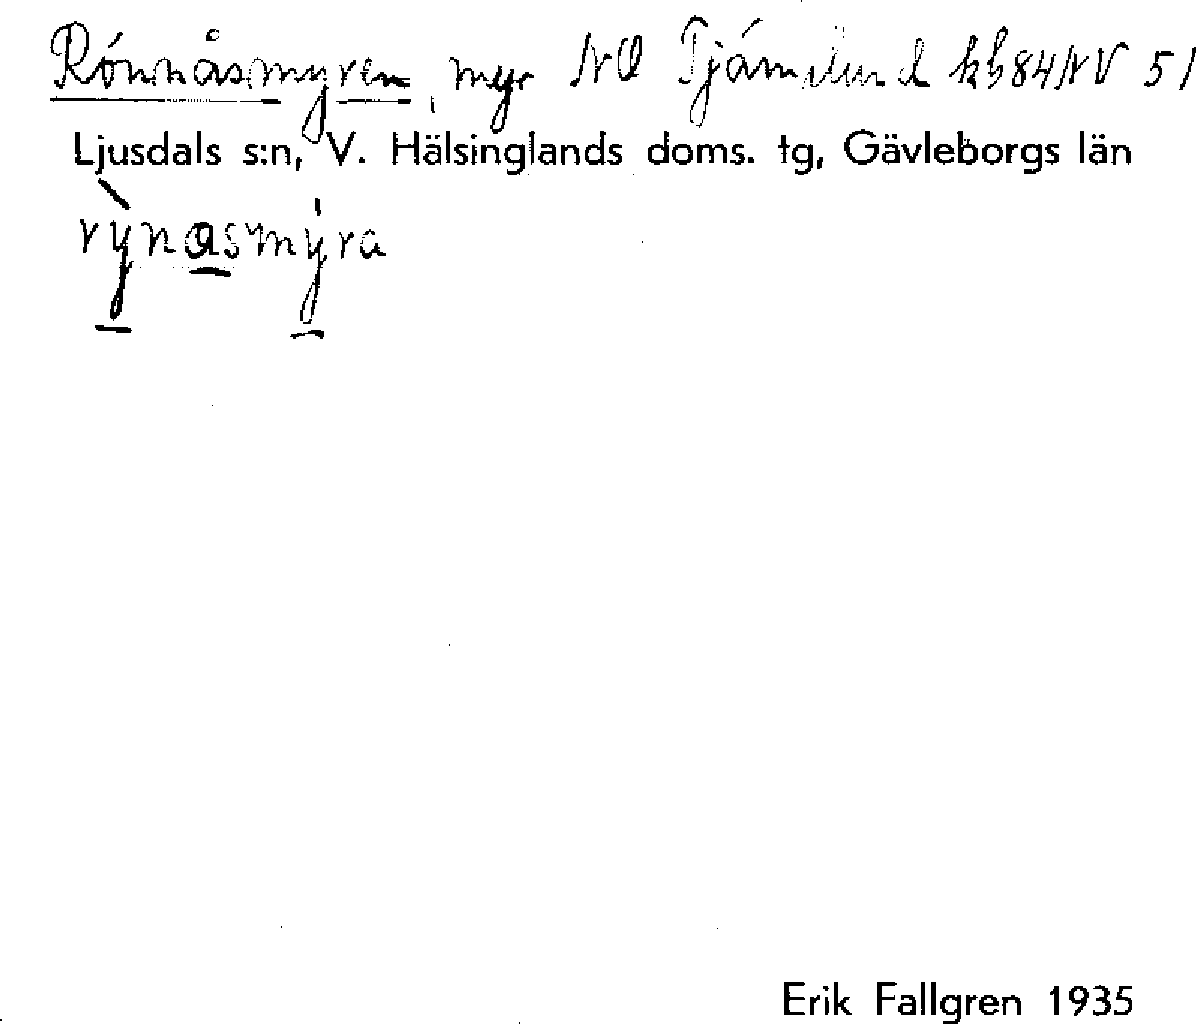 Rönnåsmyren, myr NO Tjärnilund kb84NV 51
Ljusdals s:n, V. Hälsinglands doms. tg, Gävleborgs län
rỳnasmýra
Erik Fallgren 1935